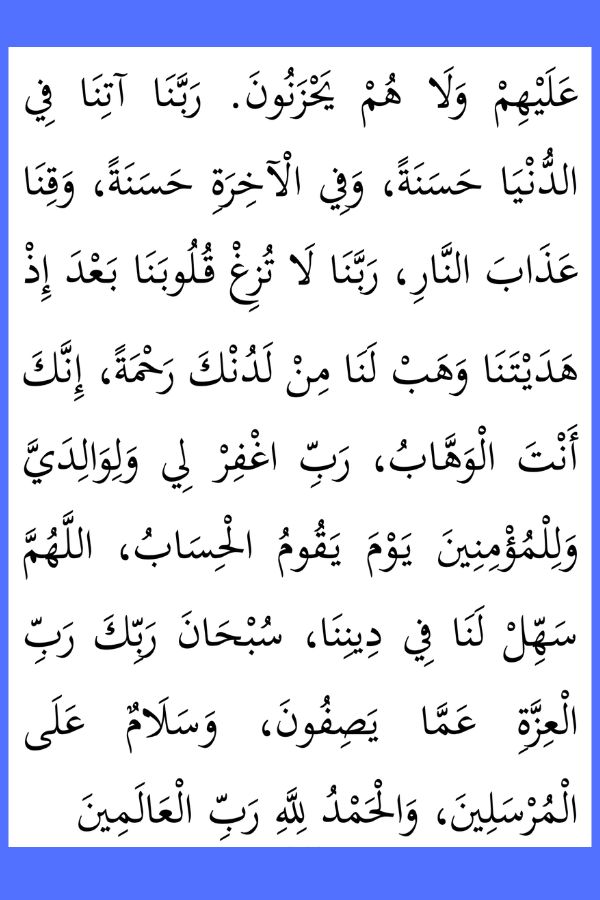 عَلَيْهِمْ وَلَا هُمْ يَحْزَنُونَ. رَبَّنَا آتِنَا فِي
الدُّنْيَا حَسَنَةً، وَفِي الْآخِرَةِ حَسَنَةً، وَقِنَا
عَذَابَ النَّارِ، رَبَّنَا لَا تُزِغْ قُلُوبَنَا بَعْدَ إِذْ
هَدَيْتَنَا وَهَبْ لَنَا مِنْ لَدُنْكَ رَحْمَةً، إِنَّكَ
أَنْتَ الْوَهَّابُ، رَبِّ اغْفِرْ لِي وَلِوَالِدَيَّ
وَلِلْمُؤْمِنِينَ يَوْمَ يَقُومُ الْحِسَابُ، اللَّهُمَّ
سَهِّلْ لَنَا فِي دِينِنَا، سُبْحَانَ رَبِّكَ رَبِّ
الْعِزَّةِ عَمَّا يَصِفُونَ، وَسَلَامٌ عَلَى
الْمُرْسَلِينَ، وَالْحَمْدُ لِلَّهِ رَبِّ الْعَالَمِينَ